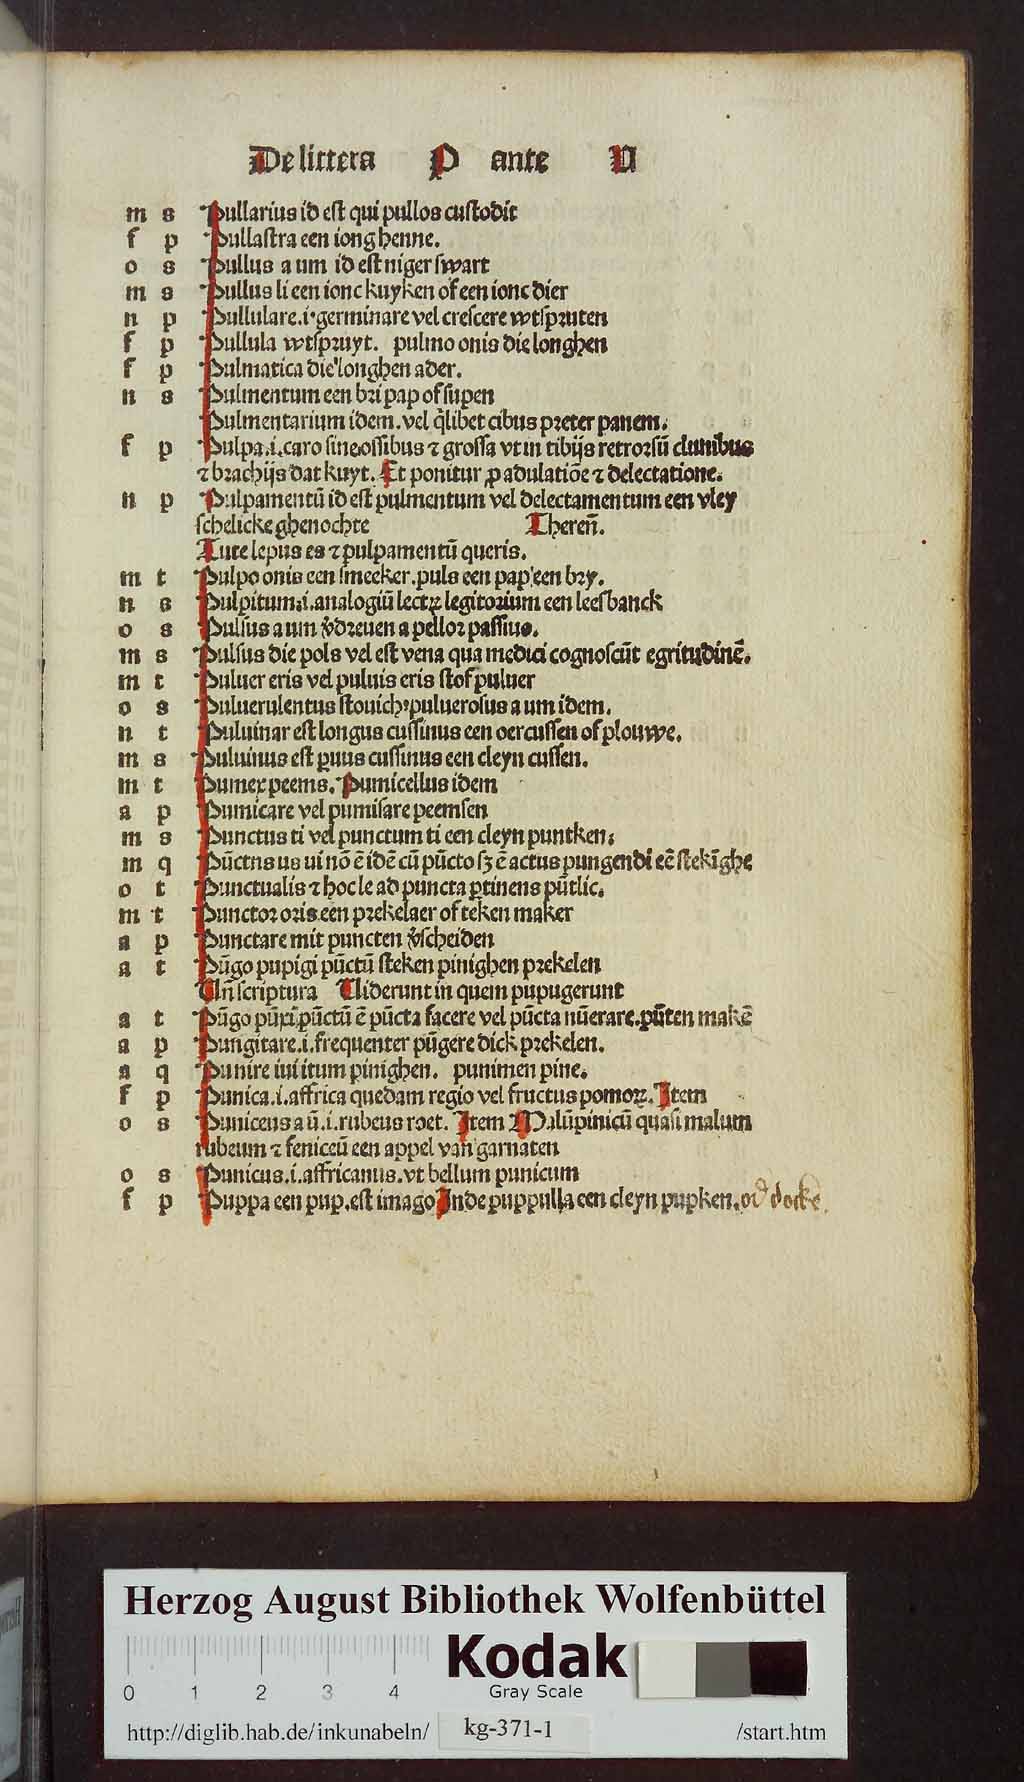 De littera P ante U
m s Pullarius id est qui pullos custodit
f p Pullastra een iong henne.
o s Pullus a um id est niger swart
m s Pullus li een ionc kuyken of een ionc dier
n p Pullulare .i. germinare vel crescere wtspruten
f p Pullula wtspruyt. pulmo onis die longhen
f p Pulmatica die longhen ader.
n s Pulmentum een bri pap of supen
Pulmentarium idem. vel qlibet cibus preter panem.
f p Pulpa .i. caro sine ossibus ⁊ grossa vt in tibijs retrorsū clunibus
⁊ brachijs dat kuyt. Et ponitur ꝓ adulatiōe ⁊ delectatione.
n p Pulpamentū id est pulmentum vel delectamentum een vley
schelicke ghenochte Therēn.
Tute lepus es ⁊ pulpamentū queris.
m t Pulpo onis een smeeker. puls een pap een bry.
n s Pulpitum .i. analogiū lectꝝ legitorium een leesbanck
o s Pulsus a um v̄dreuen a pellor passiuo.
m s Pulsus die pols vel est vena qua medici cognoscūt egritudinē.
m t Puluer eris vel puluis eris stof puluer
o s Puluerulentus stouich puluerosus a um idem.
n t Puluinar est longus cussinus een oercussen of plouwe.
m s Puluinus est ꝑuus cussinus een cleyn cussen.
m t Pumex peems. Pumicellus idem
a p Pumicare vel pumisare peemsen
m s Punctus ti vel punctum ti een cleyn puntken.
m q Pūctus us ui nō ē idē cū pūcto sꝫ ē actus pungendi eē stekīghe
o t Punctualis ⁊ hoc le ad puncta ꝑtinens pūtlic.
m t Punctor oris een prekelaer of teken maker
a p Punctare mit puncten v̄scheiden
a t Pūgo pupigi pūctū steken pinighen prekelen
Un̄ scriptura Uiderunt in quem pupugerunt
a t Pūgo pūxi pūctū ē pūcta facere vel pūcta nūerare. pūten makē
a p Pungitare .i. frequenter pūgere dick prekelen.
a q Punire iui itum pinighen. punimen pine.
f p Punica .i. affrica quedam regio vel fructus pomoꝝ. Item
o s Puniceus a ū .i. rubeus roet. Item Malūpinicū quasi malum
rubeum ⁊ feniceū een appel van garnaten
o s Punicus .i. affricanus. vt bellum punicum
f p Puppa een pup. est imago Inde puppulla een cleyn pupken. od docke.
Herzog August Bibliothek Wolfenbüttel
0 1 2 3 4
Kodak
Gray Scale
http://diglib.hab.de/inkunabeln/ kg-371-1 /start.htm